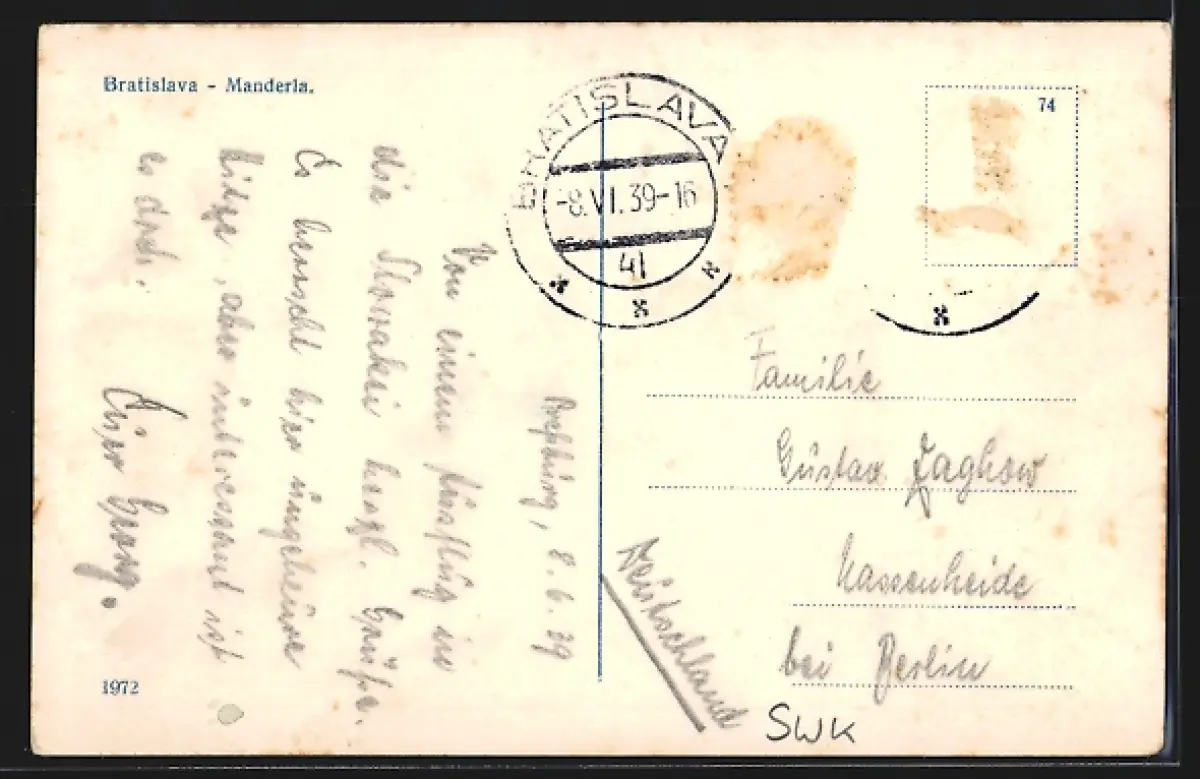 Bratislava - Manderla.
BRATISLAVA
-8.VI.39-16
41
74
Preßburg, 8.6.39
Von einem Ausflug in
die Slowakei herzl. Grüße.
Es herrscht hier ungeheure
Hitze, aber interessant ist
es doch.
Euer Georg.
Familie
Gustav Zaghow
Nassenheide
bei Berlin
Deutschland
SWK
1972